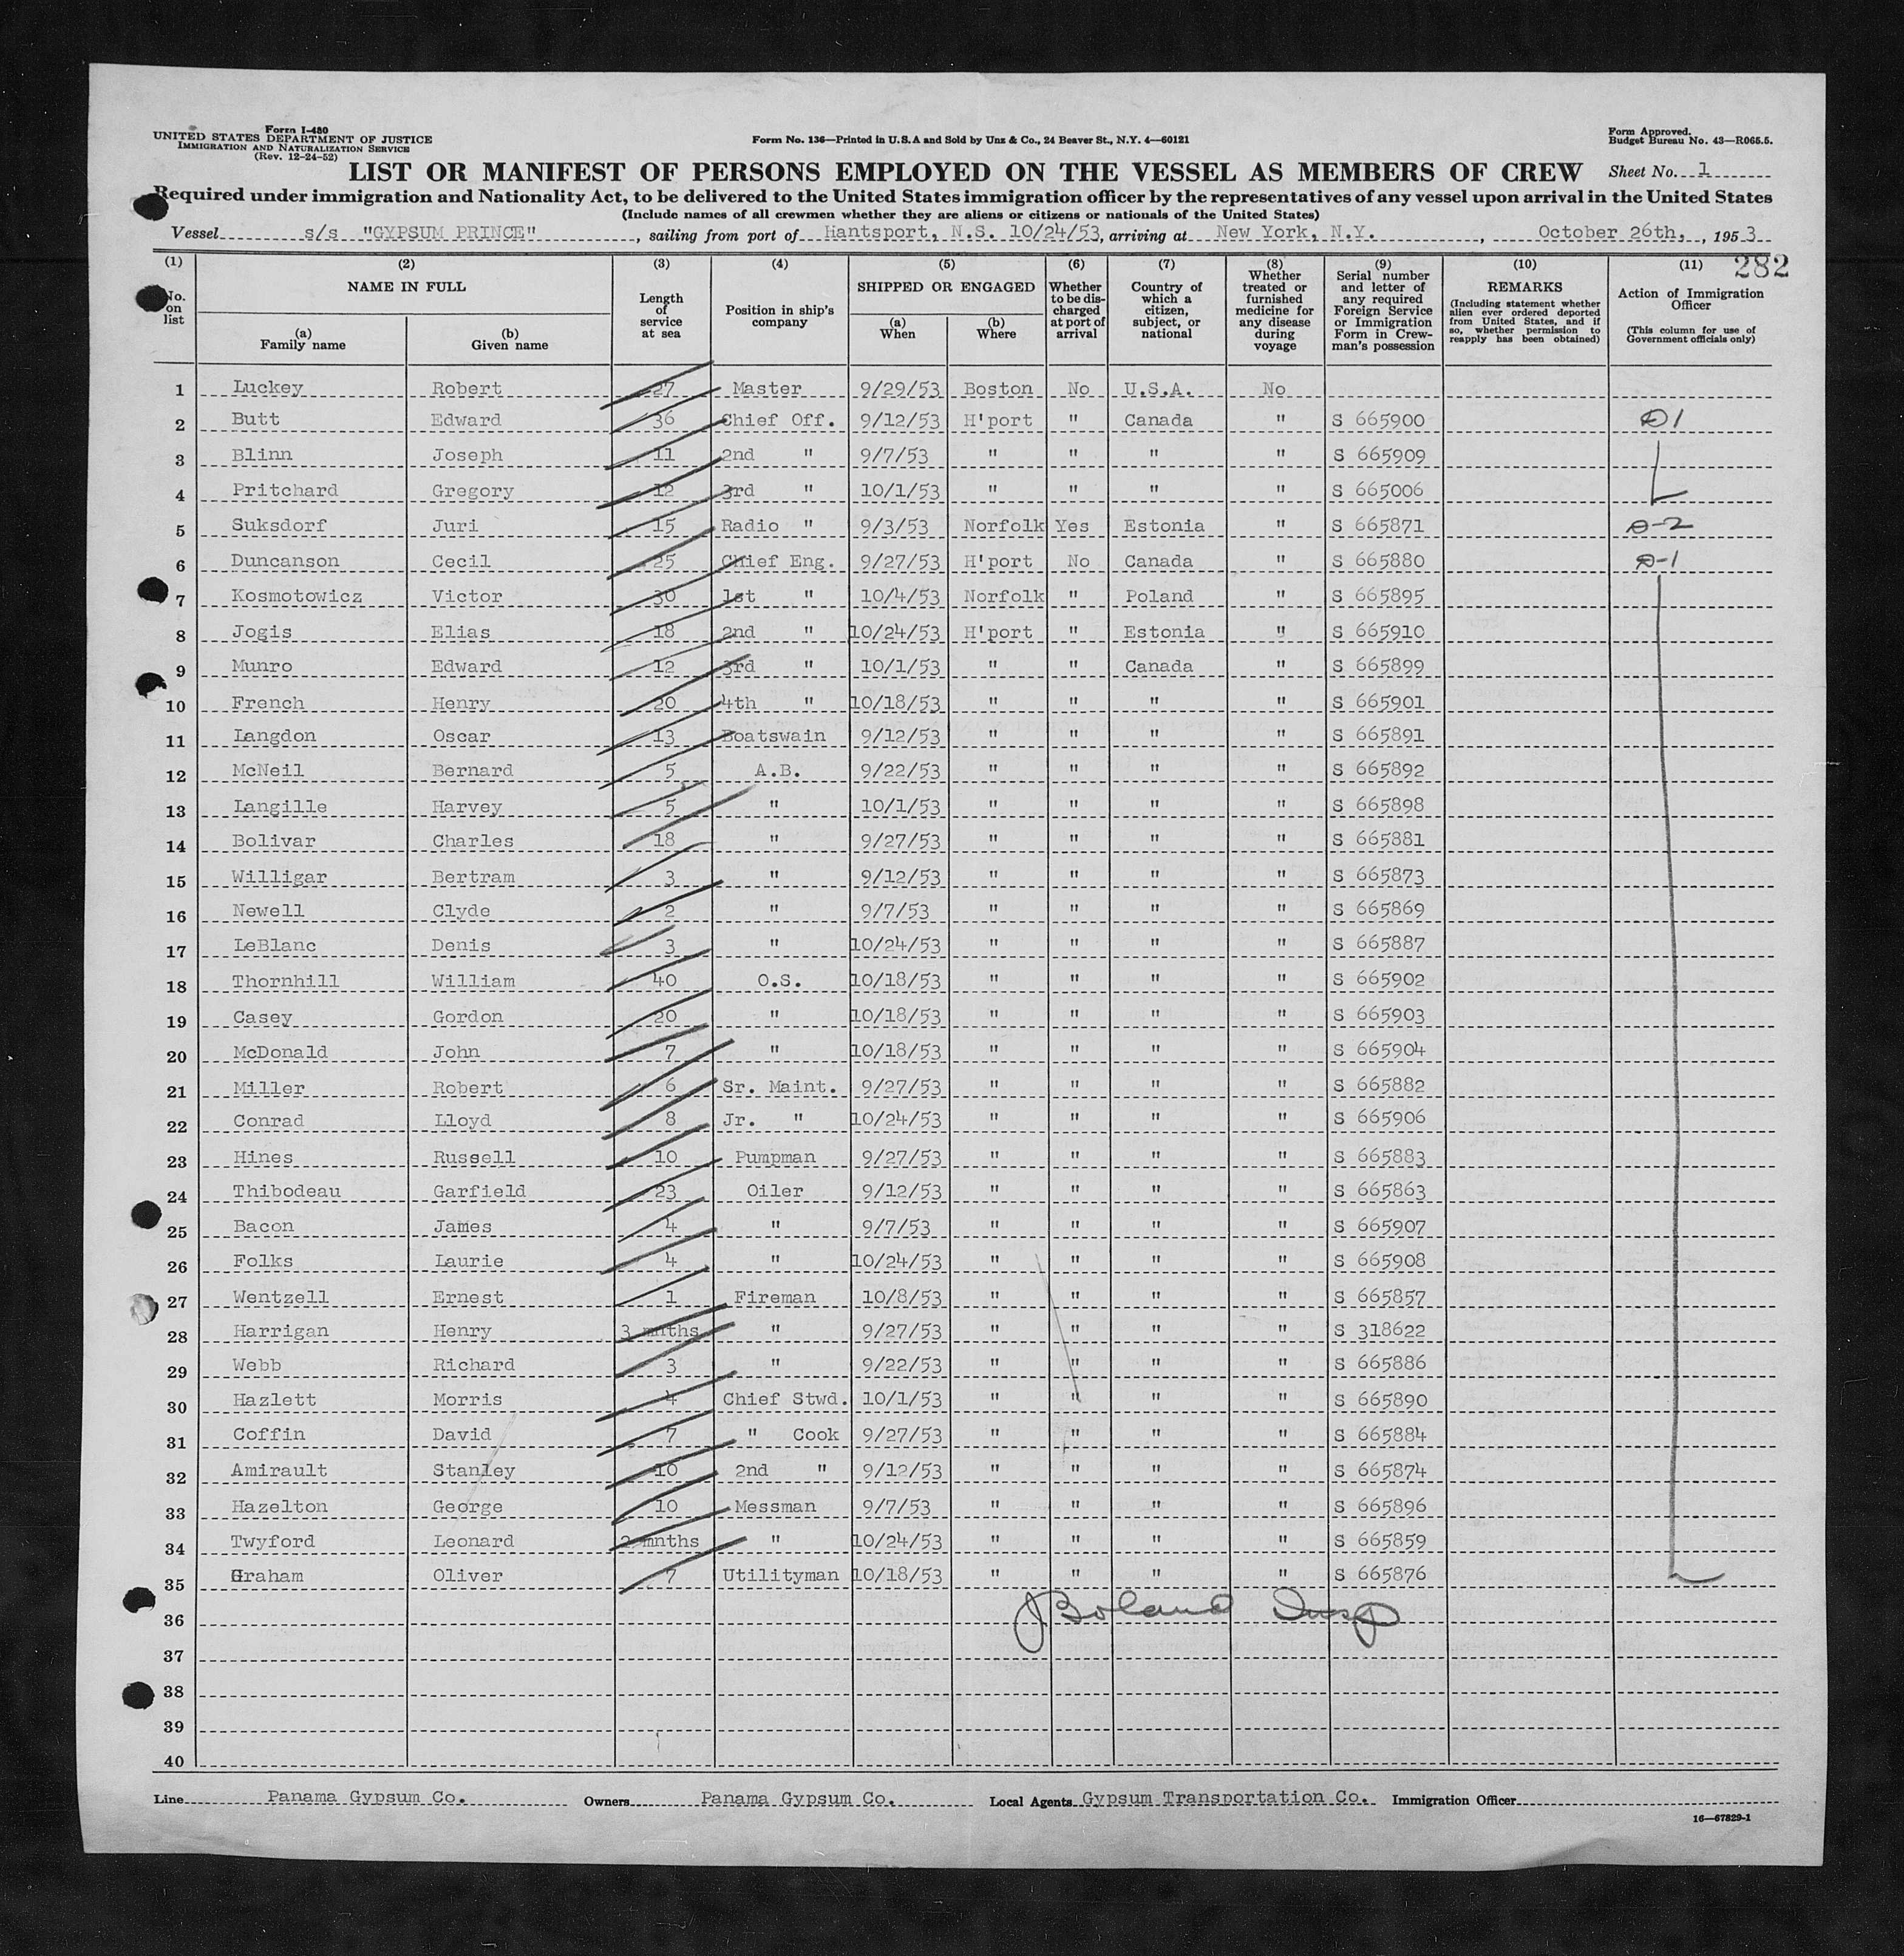 Form I-480
UNITED STATES DEPARTMENT OF JUSTICE
IMMIGRATION AND NATURALIZATION SERVICE
(Rev. 12-24-52)
Form No. 136—Printed in U.S.A and Sold by Unz & Co., 24 Beaver St., N.Y. 4—60121
Form Approved.
Budget Bureau No. 43—R065.5.
LIST OR MANIFEST OF PERSONS EMPLOYED ON THE VESSEL AS MEMBERS OF CREW Sheet No. 1
Required under immigration and Nationality Act, to be delivered to the United States immigration officer by the representatives of any vessel upon arrival in the United States
(Include names of all crewmen whether they are aliens or citizens or nationals of the United States)
Vessel s/s "GYPSUM PRINCE", sailing from port of Hantsport, N.S. 10/24/53, arriving at New York, N.Y., October 26th, 1953
282
(1) No. on list
(2) NAME IN FULL
(a) Family name
(b) Given name
(3) Length of service at sea
(4) Position in ship's company
(5) SHIPPED OR ENGAGED
(a) When
(b) Where
(6) Whether to be discharged at port of arrival
(7) Country of which a citizen, subject, or national
(8) Whether treated or furnished medicine for any disease during voyage
(9) Serial number and letter of any required Foreign Service or Immigration Form in Crewman's possession
(10) REMARKS (Including statement whether alien ever ordered deported from United States, and if so, whether permission to reapply has been obtained)
(11) Action of Immigration Officer (This column for use of Government officials only)
1 Luckey Robert 27 Master 9/29/53 Boston No U.S.A. No
2 Butt Edward 36 Chief Off. 9/12/53 H'port " Canada " S 665900 D1
3 Blinn Joseph 11 2nd " 9/7/53 " " " " S 665909
4 Pritchard Gregory 12 3rd " 10/1/53 " " " " S 665006
5 Suksdorf Juri 15 Radio " 9/3/53 Norfolk Yes Estonia " S 665871 D-2
6 Duncanson Cecil 25 Chief Eng. 9/27/53 H'port No Canada " S 665880 D-1
7 Kosmotowicz Victor 30 1st " 10/4/53 Norfolk " Poland " S 665895
8 Jogis Elias 18 2nd " 10/24/53 H'port " Estonia " S 665910
9 Munro Edward 12 3rd " 10/1/53 " " Canada " S 665899
10 French Henry 20 4th " 10/18/53 " " " " S 665901
11 Langdon Oscar 13 Boatswain 9/12/53 " " " " S 665891
12 McNeil Bernard 5 A.B. 9/22/53 " " " " S 665892
13 Langille Harvey 5 " 10/1/53 " " " " S 665898
14 Bolivar Charles 18 " 9/27/53 " " " " S 665881
15 Willigar Bertram 3 " 9/12/53 " " " " S 665873
16 Newell Clyde 2 " 9/7/53 " " " " S 665869
17 LeBlanc Denis 3 " 10/24/53 " " " " S 665887
18 Thornhill William 40 O.S. 10/18/53 " " " " S 665902
19 Casey Gordon 20 " 10/18/53 " " " " S 665903
20 McDonald John 7 " 10/18/53 " " " " S 665904
21 Miller Robert 6 Sr. Maint. 9/27/53 " " " " S 665882
22 Conrad Lloyd 8 Jr. " 10/24/53 " " " " S 665906
23 Hines Russell 10 Pumpman 9/27/53 " " " " S 665883
24 Thibodeau Garfield 23 Oiler 9/12/53 " " " " S 665863
25 Bacon James 4 " 9/7/53 " " " " S 665907
26 Folks Laurie 4 " 10/24/53 " " " " S 665908
27 Wentzell Ernest 1 Fireman 10/8/53 " " " " S 665857
28 Harrigan Henry 3 mnths " 9/27/53 " " " " S 318622
29 Webb Richard 3 " 9/22/53 " " " " S 665886
30 Hazlett Morris 4 Chief Stwd. 10/1/53 " " " " S 665890
31 Coffin David 7 " Cook 9/27/53 " " " " S 665884
32 Amirault Stanley 10 2nd " 9/12/53 " " " " S 665874
33 Hazelton George 10 Messman 9/7/53 " " " " S 665896
34 Twyford Leonard 2 mnths " 10/24/53 " " " " S 665859
35 Graham Oliver 7 Utilityman 10/18/53 " " " " S 665876
36 Boland Insp
37
38
39
40
Line Panama Gypsum Co. Owners Panama Gypsum Co. Local Agents Gypsum Transportation Co. Immigration Officer
16—67829-1